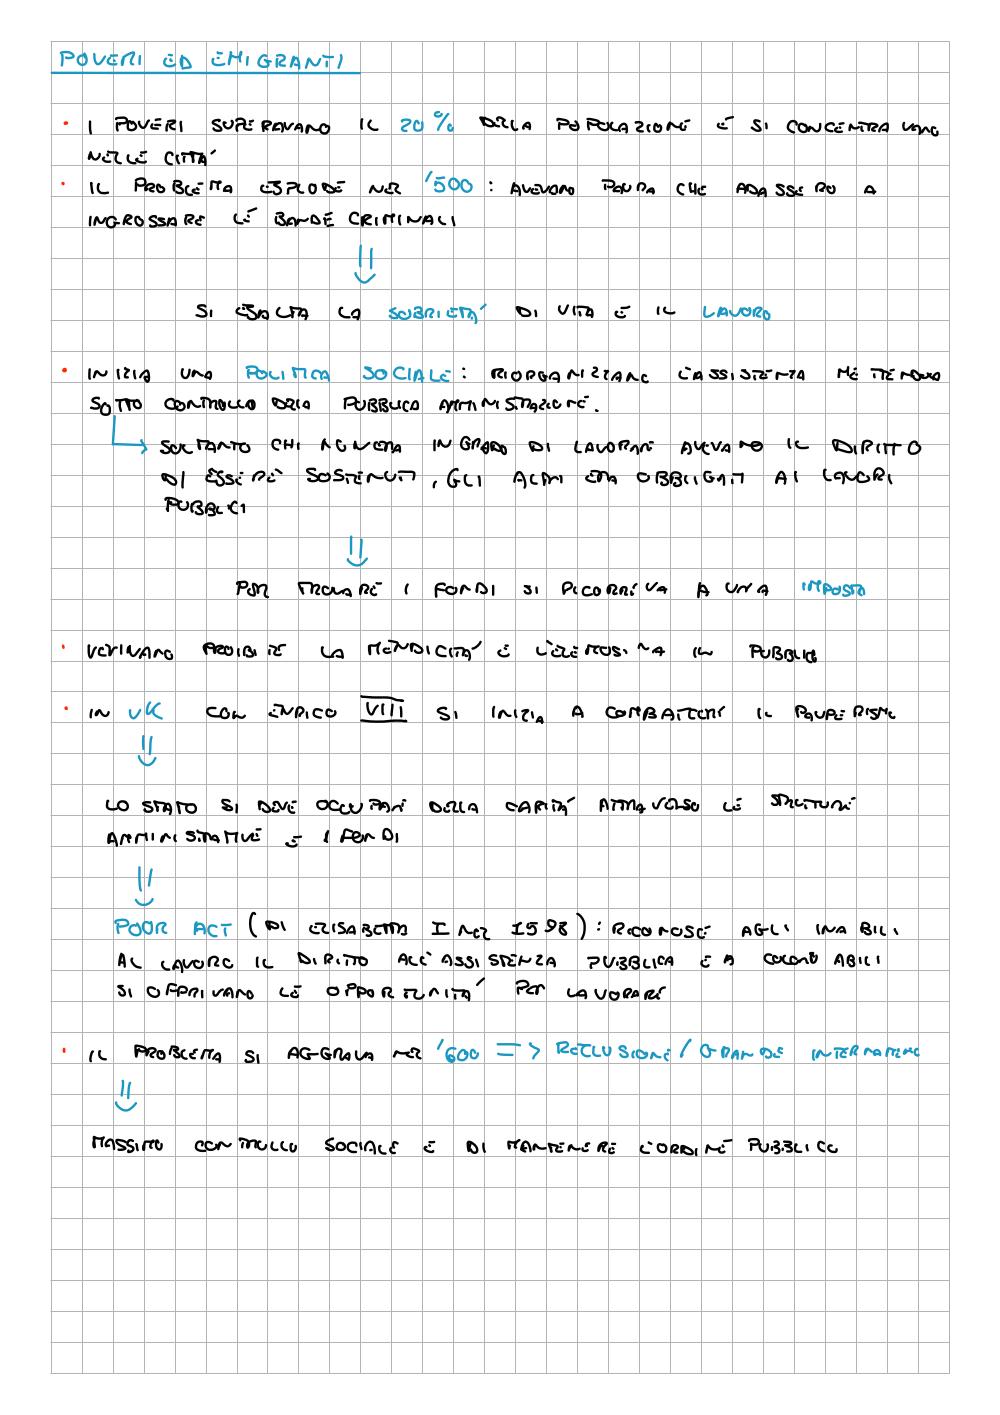 POVERI ED EMIGRANTI
• I POVERI SUPERAVANO IL 20% DELLA POPOLAZIONE E SI CONCENTRAVANO
NELLE CITTA'
• IL PROBLEMA ESPLODE NEL '500 : AVEVANO PAURA CHE ADASSERO A
INGROSSARE LE BANDE CRIMINALI
⇓
SI ESALTA LA SOBRIETA' DI VITA E IL LAVORO
• INIZIA UNA POLITICA SOCIALE : RIORGANIZZANO L'ASSISTENZA METTENDOLA
SOTTO CONTROLLO DELLA PUBBLICA AMMINISTRAZIONE.
↳ SOLTANTO CHI NON ERA IN GRADO DI LAVORARE AVEVANO IL DIRITTO
DI ESSERE SOSTENUTI , GLI ALTRI ERA OBBLIGATI AI LAVORI
PUBBLICI
⇓
PER TROVARE I FONDI SI RICORREVA A UNA IMPOSTA
• VENIVANO PROIBITE LA MENDICITA' E L'ELEMOSINA IN PUBBLICO
• IN UK CON ENRICO VIII SI INIZIA A COMBATTERE IL PAUPERISMO
⇓
LO STATO SI DEVE OCCUPARE DELLA CARITA' ATTRAVERSO LE STRUTTURE
AMMINISTRATIVE E I FONDI
⇓
POOR ACT (DI ELISABETTA I NEL 1598) : RICONOSCE AGLI INABILI
AL LAVORO IL DIRITTO ALL'ASSISTENZA PUBBLICA E A COLORO ABILI
SI OFFRIVANO LE OPPORTUNITA' PER LAVORARE
• IL PROBLEMA SI AGGRAVA NEL '600 => RECLUSIONE / GRANDE INTERNAMENTO
⇓
MASSIMO CONTROLLO SOCIALE E DI MANTENERE L'ORDINE PUBBLICO